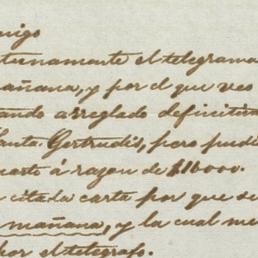 migo
tunamente el telegrama
mañana, y por el que veo
ando arreglado definitiva
Santa Gertrudis, pero pudi
carto á razon de $16000.
citada carta por que se
mañana, y la cual me
por el telegrafo.